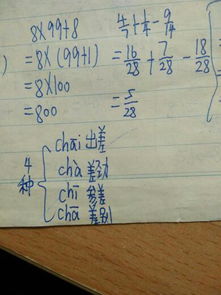 8×99+8
=8×(99+1)
=8×100
=800
4/7+1/4-9/14
=16/28+7/28-18/28
=5/28
4种
chāi 出差
chà 差劲
cī 参差
chā 差别